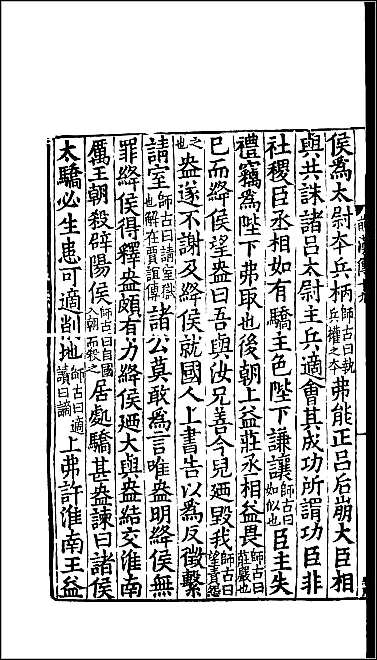 侯爲太尉夲兵柄師古曰執兵權之夲弗能正吕后崩大臣相
與共誅諸吕太尉主兵適會其成功所謂功臣非
社稷臣丞相如有驕主色陛下謙讓師古曰如似也臣主失
禮竊爲陛下弗取也後朝上益莊丞相益畏師古曰莊嚴也
已而絳侯望盎曰吾與汝兄善今兒廼毁我師古曰望責怨
之也盎遂不謝及絳侯就國人上書告以爲反徵繫
請室師古曰請室獄也解在賈誼傳諸公莫敢爲言唯盎明絳侯無
罪絳侯得釋盎頗有力絳侯廼大與盎結交淮南
厲王朝殺辟陽侯師古曰自國入朝而殺之居處驕甚盎諫曰諸侯
太驕必生患可適削地師古曰適讀曰謫上弗許淮南王益